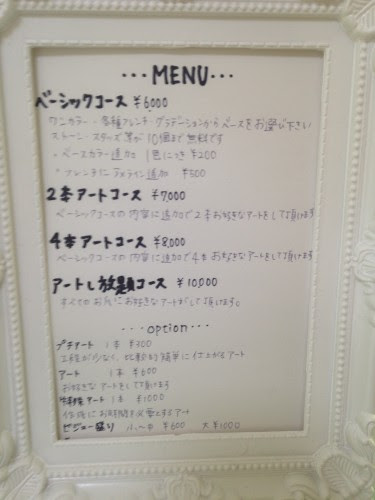 ...MENU...
ベーシックコース ¥6,000
ワンカラー・各種フレンチ・グラデーションからベースをお選び下さい
ストーン・スターズ等が10個まで無料です
・ベースカラー追加 1色につき¥200
・フレンチにラメライン追加 ¥500
2本アートコース ¥7,000
ベーシックコースの内容に追加で2本お好きなアートをして頂けます
4本アートコース ¥8,000
ベーシックコースの内容に追加で4本お好きなアートをして頂けます
アートし放題コース ¥10,000
すべてのお爪にお好きなアートがして頂けます。
...option...
プチアート 1本 ¥300
工程が少なく、比較的簡単に仕上がるアート
アート 1本 ¥600
お好きなアートをして頂けます
アート 1本 ¥1000
作成にお時間を必要とするアート
ビジュー盛り 小〜中 ¥600 大 ¥1000